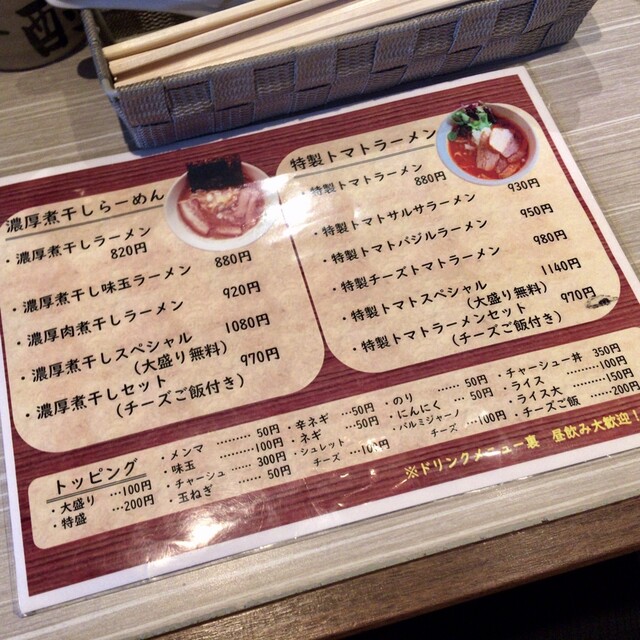 濃厚煮干しらーめん
・濃厚煮干しラーメン
820円
・濃厚煮干し味玉ラーメン 880円
・濃厚肉煮干しラーメン 920円
・濃厚煮干しスペシャル 1080円
(大盛り無料)
・濃厚煮干しセット 970円
(チーズご飯付き)
特製トマトラーメン
・特製トマトラーメン
880円
・特製トマトサルサラーメン 930円
・特製トマトバジルラーメン 950円
・特製チーズトマトラーメン 980円
・特製トマトスペシャル 1140円
(大盛り無料)
・特製トマトラーメンセット 970円
(チーズご飯付き)
トッピング
・大盛り …100円
・特盛 …200円
・メンマ ………50円
・味玉 ………100円
・チャーシュ ……300円
・玉ねぎ ………50円
・辛ネギ …50円
・ネギ …50円
・シュレット
チーズ …100円
・のり ……50円
・にんにく ……50円
・パルミジャーノ
チーズ …100円
・チャーシュー丼 350円
・ライス ………100円
・ライス大 ………150円
・チーズご飯 ……200円
※ドリンクメニュー裏 昼飲み大歓迎！